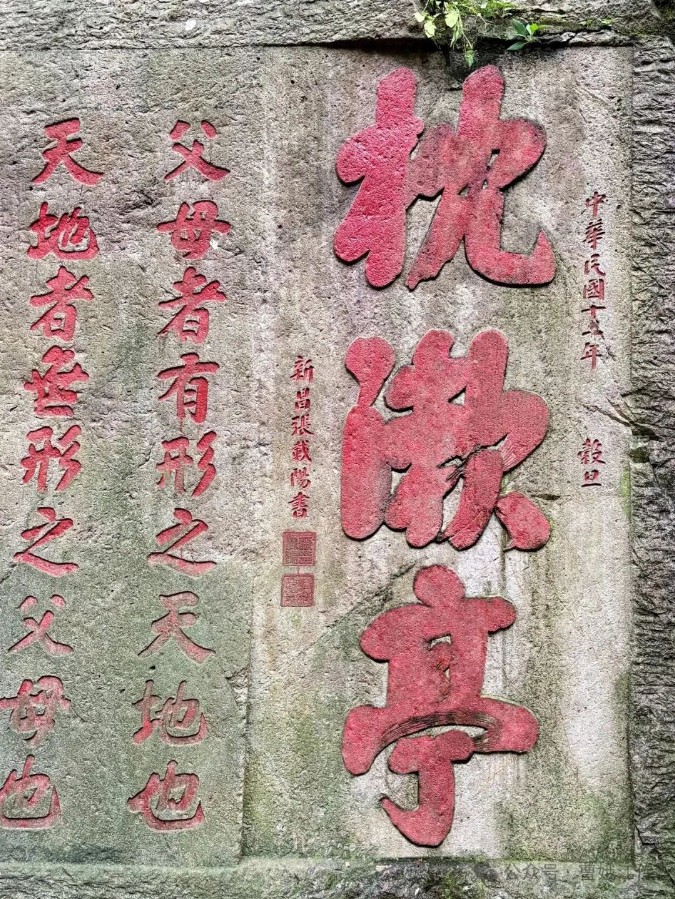 中華民國十五年 穀旦
枕漱亭
新昌張載陽書
父母者有形之天地也
天地者無形之父母也
公众号